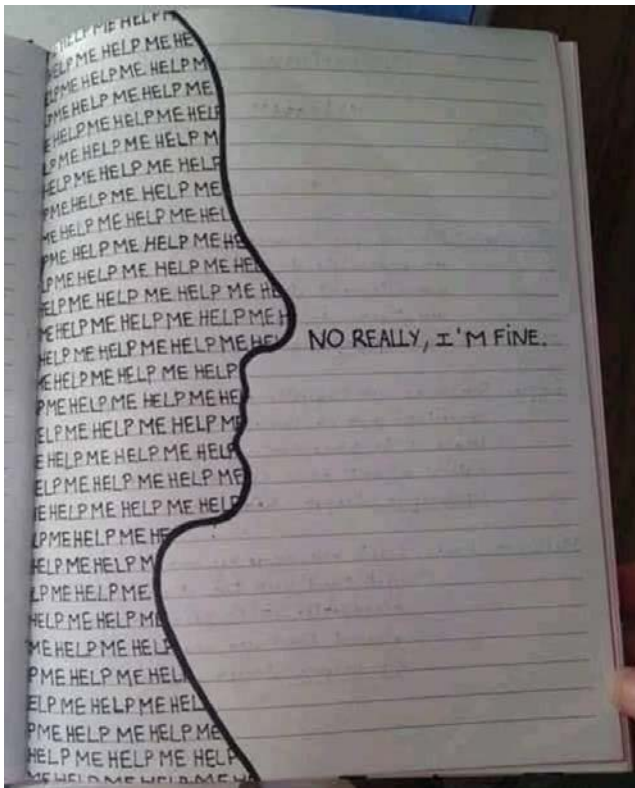 HELP ME HELP M
HELP ME HELP ME HE
ELP ME HELP ME HELP M
PMEHELP ME HELP ME HELP
E HELP ME HELP ME HELP
LP ME HELP ME HELP M
HELP ME HELP ME HELP
PMEHELP ME HELP ME
ME HELP ME HELP ME HEL
PME HELP ME HELP ME HE
LP ME HELP ME HELP ME HEL
ELP ME HELP ME HELP ME HE
ME HELP ME HELP ME HELP ME H
HELP ME HELP ME HELP ME HEL NO REALLY, I'M FINE.
ME HELP ME HELP ME HELP
PME HELP ME HELP ME HELP ME
ELP ME HELP ME HELP ME
E HELP ME HELP ME HELP
ELP ME HELP ME HELP ME
E HELP ME HELP ME HELP
LP ME HELP ME HE
HELP ME HELP M
LP ME HELP ME
HELP ME HELP M
ME HELP ME HELP
PME HELP ME HEL
ELP ME HELP ME HEL
PME HELP ME HELP ME
HELP ME HELP ME HELP
ME HELP ME HELP ME HE